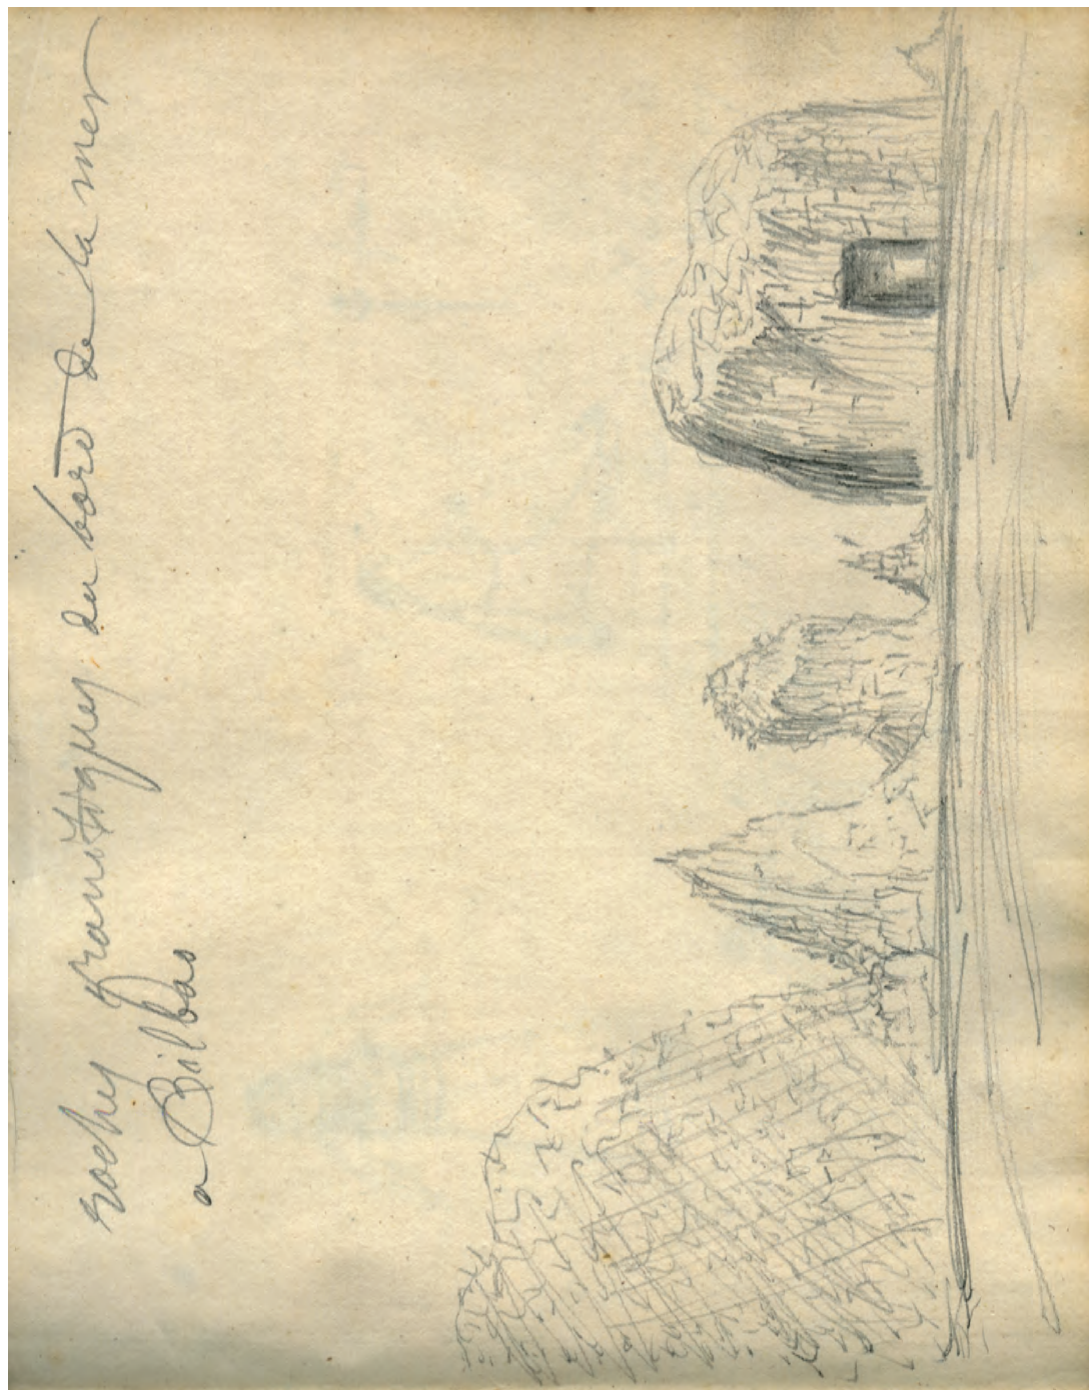 roches granitiques du bord de la mer
a Bilbao